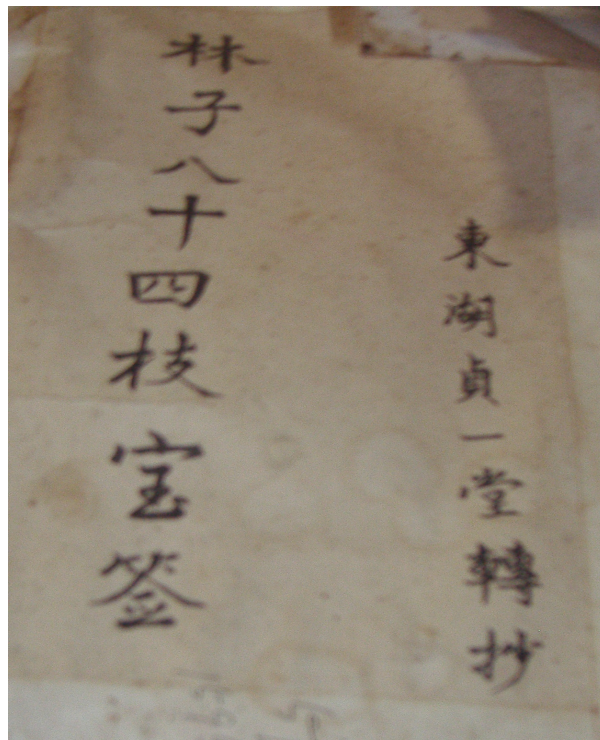 東湖貞一堂轉抄
林子八十四枝宝签